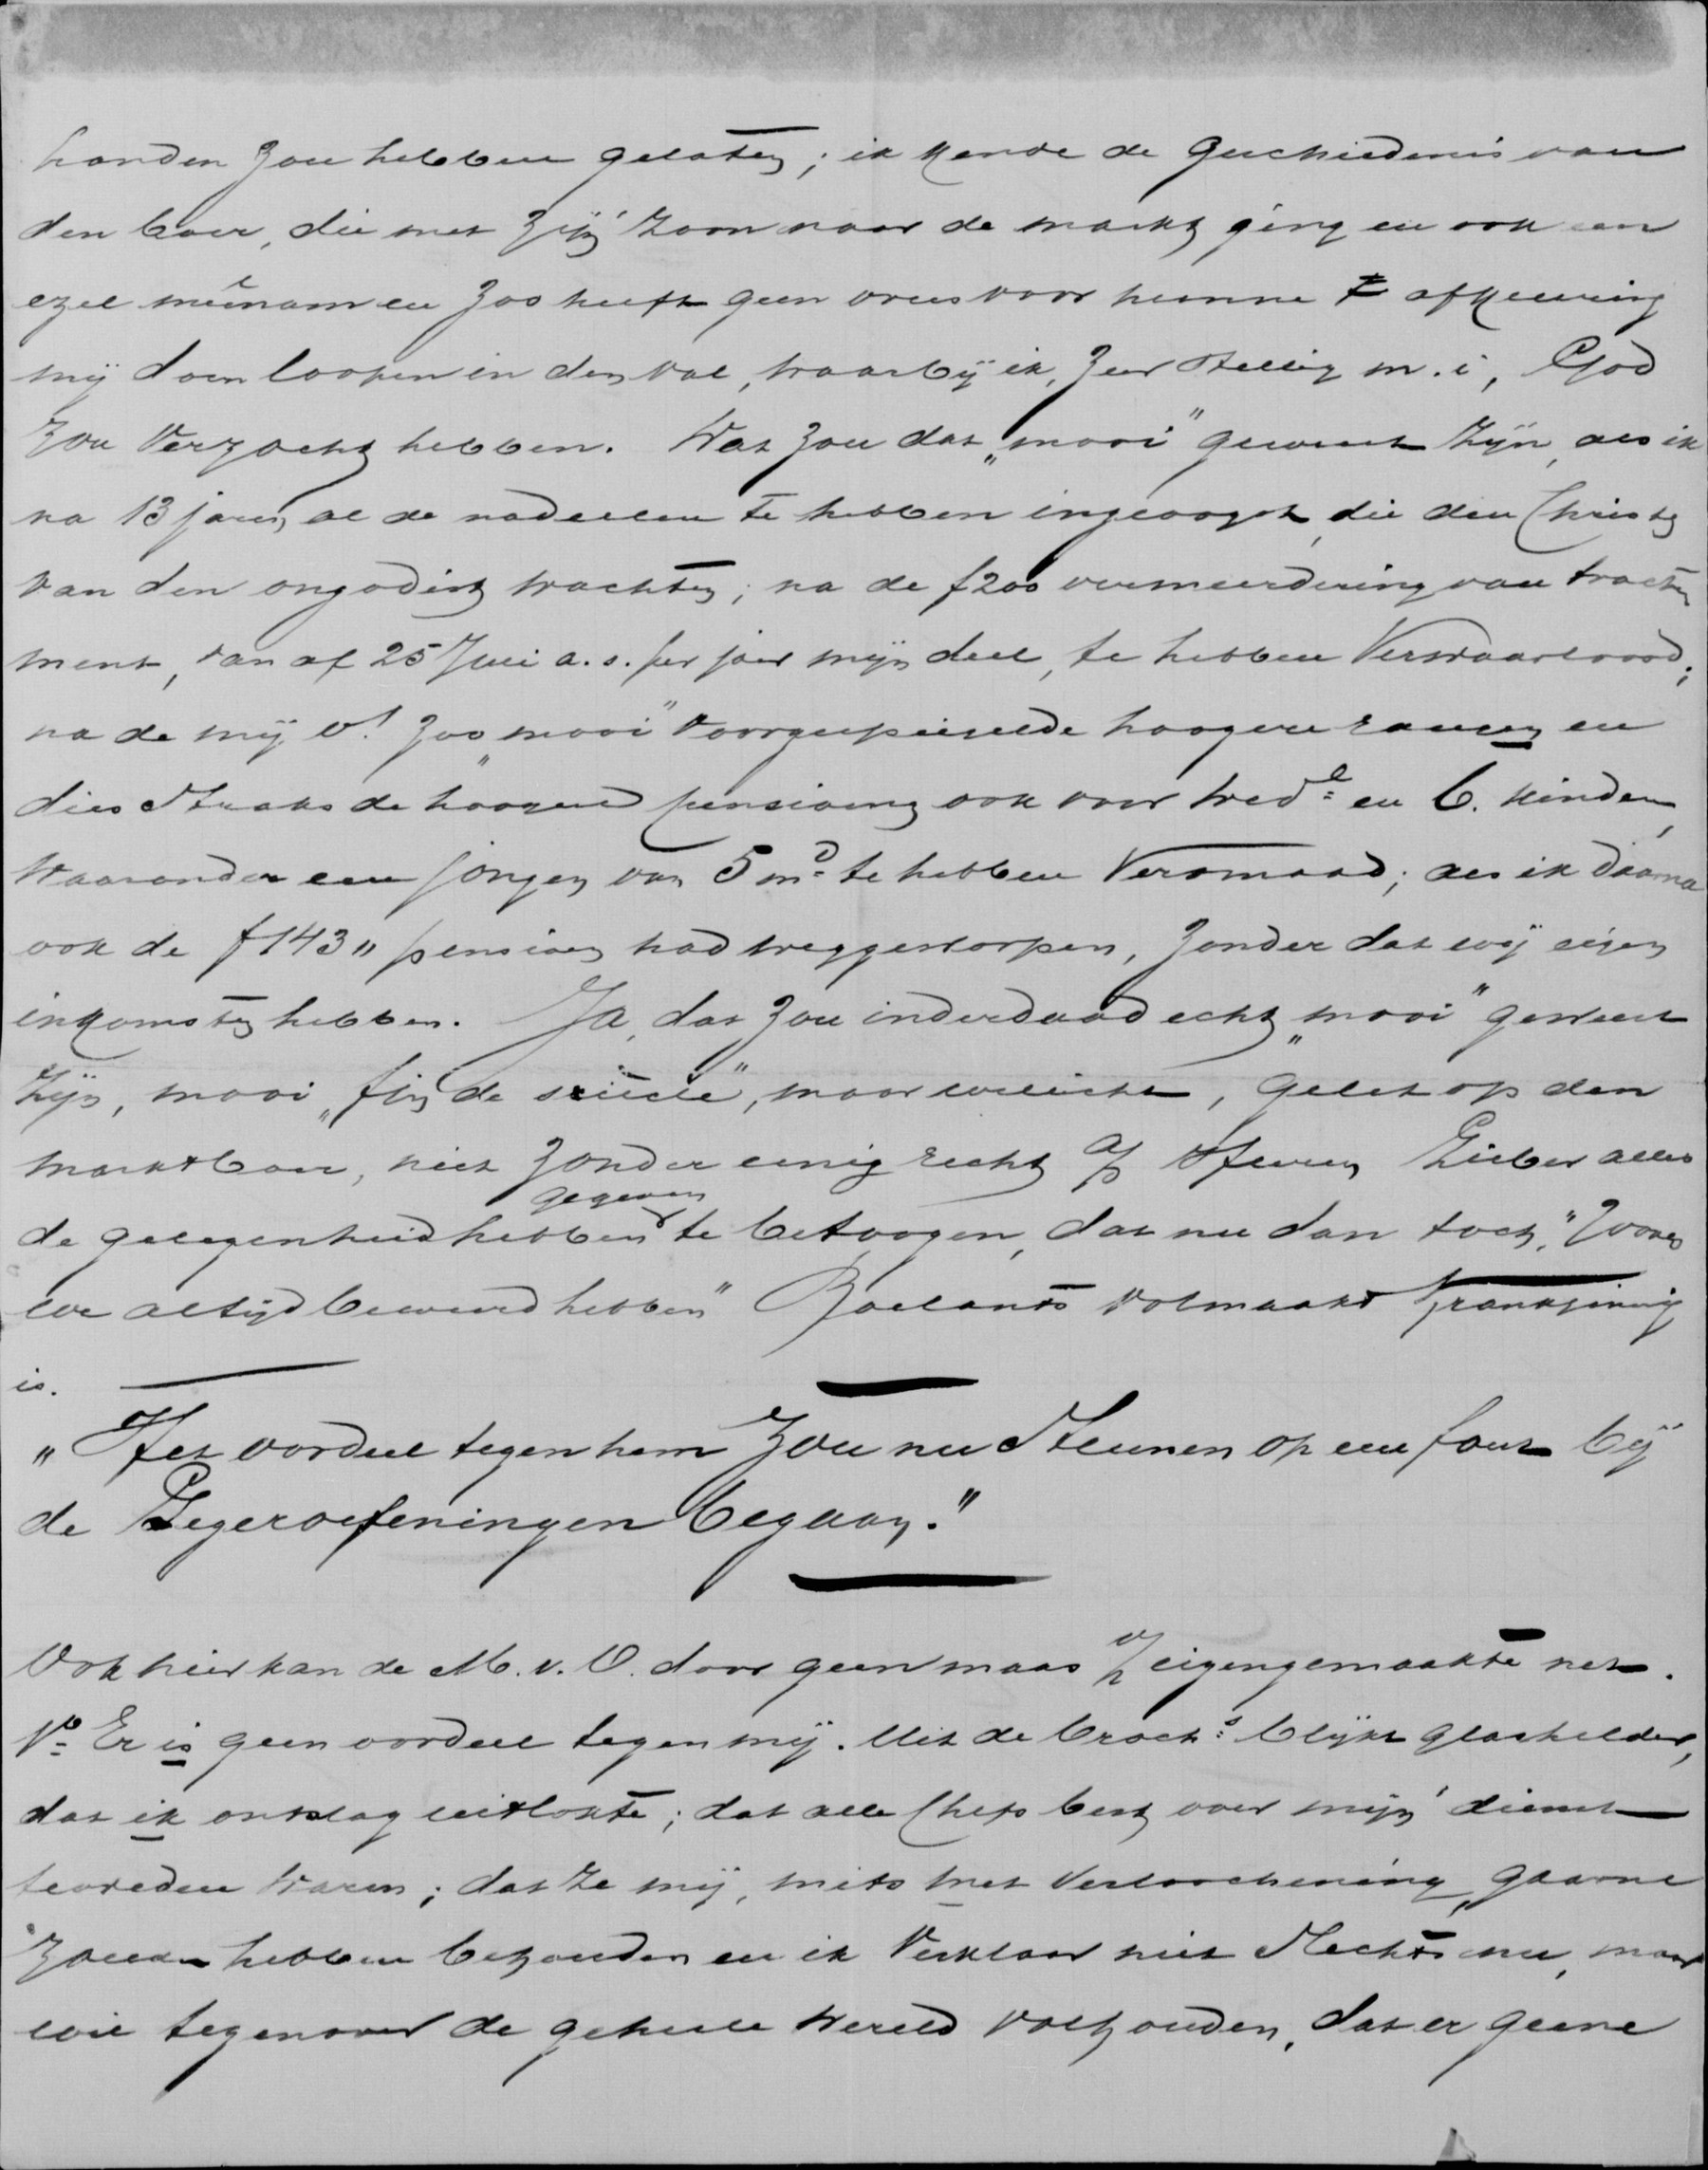 handen zou hebben gelaten; ik kende de geschiedenis van
den boer, die met zijn zoon naar de markt ging en ook een
ezel meênam en zoo heeft geen vrees voor hunne afkeuring
mij doen loopen in den val, waarbij ik, zeer stellig m. i., God
zou verzocht hebben. Wat zou dat „mooi" geweest zijn, als ik
na 13 jaren al de nadeelen te hebben ingeoogst, die den Christen
van den ongodist wachten; na de f200 vermeerdering van tracte-
ment, van af 25 Juni a. s. per jaar mijn deel, te hebben verwaarloosd;
na de mij o! zoo „mooi" voorgespiegelde hoogere rangen en
dies straks de hoogere pensioenen ook voor wede en 6. kinderen,
waaronder een jongen van 5 md te hebben versmaad; als ik daarna
ook de f143 „ pensioen had weggeworpen, zonder dat wij eigen
inkomsten hebben. Ja, dat zou inderdaad echt „mooi" geweest
zijn, mooi „fin de siècle", maar wellicht, gelet op den
marktboer, niet zonder eenig recht a/h Heeren Lieber alles
de gelegenheid hebben gegeven te betoogen, dat nu dan toch, „zooals
we altijd beweerd hebben" Roelants volmaakt krankzinnig
is.
„Het oordeel tegen hem zou nu steunen op een fout bij
de Legeroefeningen begaan."
Ook hier kan de M. v. O. door geen maas v/h eigengemaakte net.
1o Er is geen oordeel tegen mij. Uit de broch:s blijkt glashelder,
dat ik ontslag uitlokte; dat alle Chefs best over mijn dienst
tevreden waren; dat ze mij, mits met verloochening, gaarne
zouden hebben behouden en ik verklaar niet slechts nu, maar
wil tegenover de geheele wereld volhouden, dat er geene